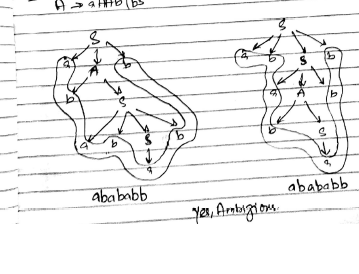 A → aAAb|bS
S S
a A b a b S b
b S a A b
a b S b b S
a a
abababb abababb
yes, Ambigious